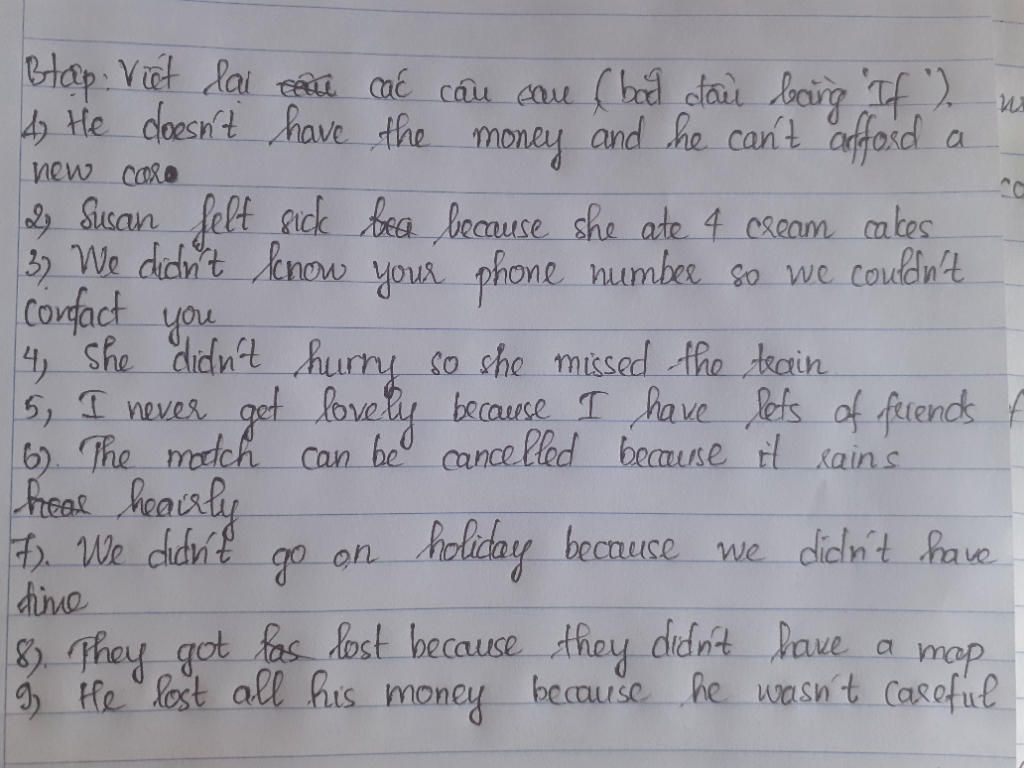 Btập: Viết lại các câu sau (bắt đầu bằng 'If').
1) He doesn't have the money and he can't afford a
new car.
2) Susan felt sick because she ate 4 cream cakes
3) We didn't know your phone number so we couldn't
contact you
4, She didn't hurry so she missed the train
5, I never get lovely because I have lots of friends
6). The match can be cancelled because it rains
heavily
7). We didn't go on holiday because we didn't have
time
8). They got lost because they didn't have a map
9, He lost all his money because he wasn't careful